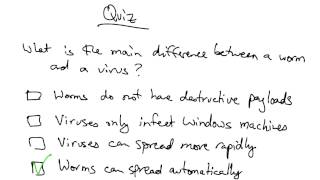 Quiz
What is the main difference between a worm
ad a virus?
Worms do not have destructive payloads
Viruses only infect Windows machines
Viruses can spread more rapidly
Worms can spread automatically